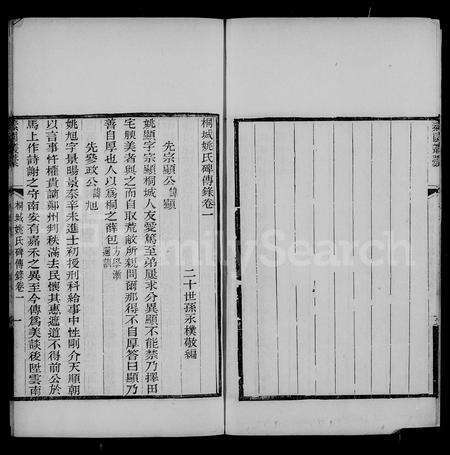 桐城姚氏碑傳錄卷一
二十世孫永樸敬編
先宗顯公諱顯
姚顯字宗顯桐城人友愛篤至弟屢求分異顯不能禁乃擇田
宅腴美者與之而自取荒敝所親問爾那得不自厚答曰顯乃
善自厚也人以為桐之薛包方學漸邇訓
先參政公諱旭
姚旭字景暘景泰辛未進士初授刑科給事中性剛介天順朝
以言事忤權貴謫鄭州判秩滿去民懷其惠遮道不得前公於
馬上作詩謝之守南安有嘉禾之異至今傳為美談後陞雲南
桐城姚氏碑傳錄卷一
一
FamilySearch